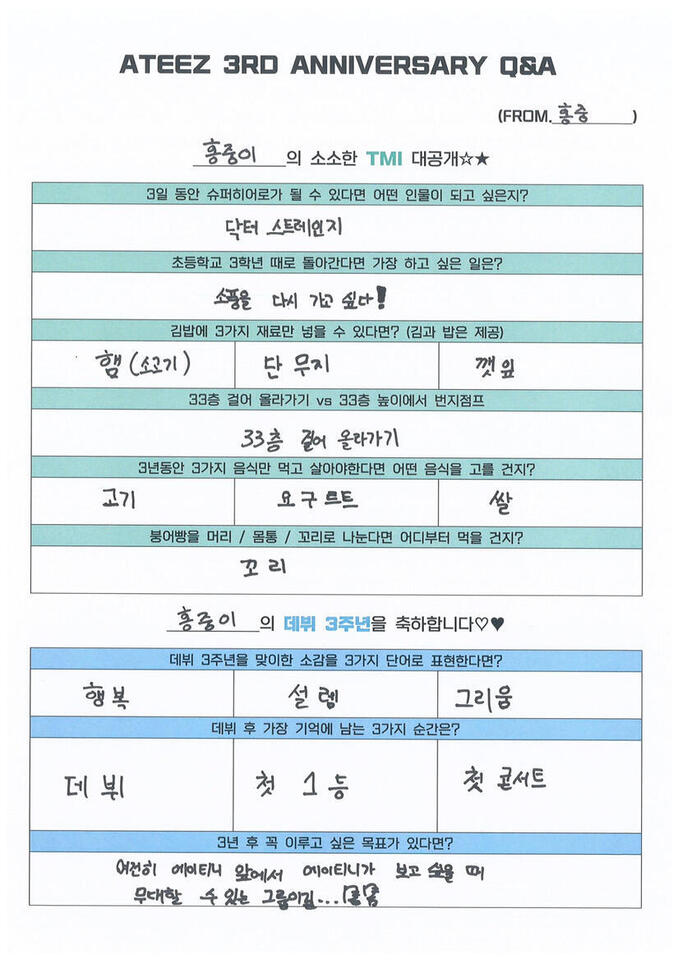 ATEEZ 3RD ANNIVERSARY Q&A
(FROM.홍중)
홍중이의 소소한 TMI 대공개☆★
3일 동안 슈퍼히어로가 될 수 있다면 어떤 인물이 되고 싶은지?
닥터 스트레인지
초등학교 3학년 때로 돌아간다면 가장 하고 싶은 일은?
소풍을 다시 가고 싶다!
김밥에 3가지 재료만 넣을 수 있다면? (김과 밥은 제공)
햄(소고기) 단무지 깻잎
33층 걸어 올라가기 vs 33층 높이에서 번지점프
33층 걸어 올라가기
3년동안 3가지 음식만 먹고 살아야한다면 어떤 음식을 고를 건지?
고기 요구르트 쌀
붕어빵을 머리 / 몸통 / 꼬리로 나눈다면 어디부터 먹을 건지?
꼬리
홍중이의 데뷔 3주년을 축하합니다♡♥
데뷔 3주년을 맞이한 소감을 3가지 단어로 표현한다면?
행복 설렘 그리움
데뷔 후 가장 기억에 남는 3가지 순간은?
데뷔 첫 1등 첫 콘서트
3년 후 꼭 이루고 싶은 목표가 있다면?
여전히 에이티니 앞에서 에이티니가 보고 싶을 때
무대할 수 있는 그룹이길...